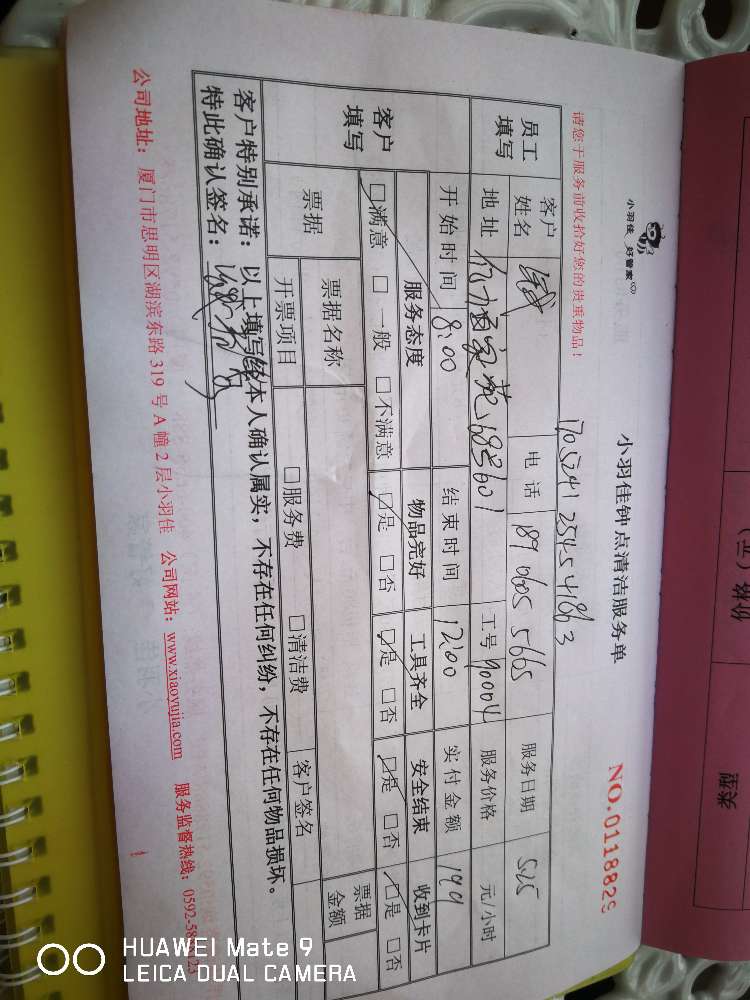 小羽佳 好管家
小羽佳钟点清洁服务单
NO.0118829
请您于服务前收拾好您的贵重物品!
员工填写
客户姓名
电话 189 0605 5665
服务日期 5.25
地址
工号 90004
服务价格 元/小时
开始时间 8:00
结束时间 12:00
实付金额 199
客户填写
服务态度 物品完好 工具齐全 安全结束 收到卡片
□满意 □一般 □不满意 □是 □否 □是 □否 □是 □否 □是 □否
票据 票据名称 票据金额
开票项目 □服务费 □清洁费 客户签名
客户特别承诺:以上填写经本人确认属实,不存在任何纠纷,不存在任何物品损坏。
特此确认签名:
公司地址:厦门市思明区湖滨东路 319 号 A 幢 2 层小羽佳 公司网站:www.xiaoyujia.com 服务监督热线:
HUAWEI Mate 9
LEICA DUAL CAMERA